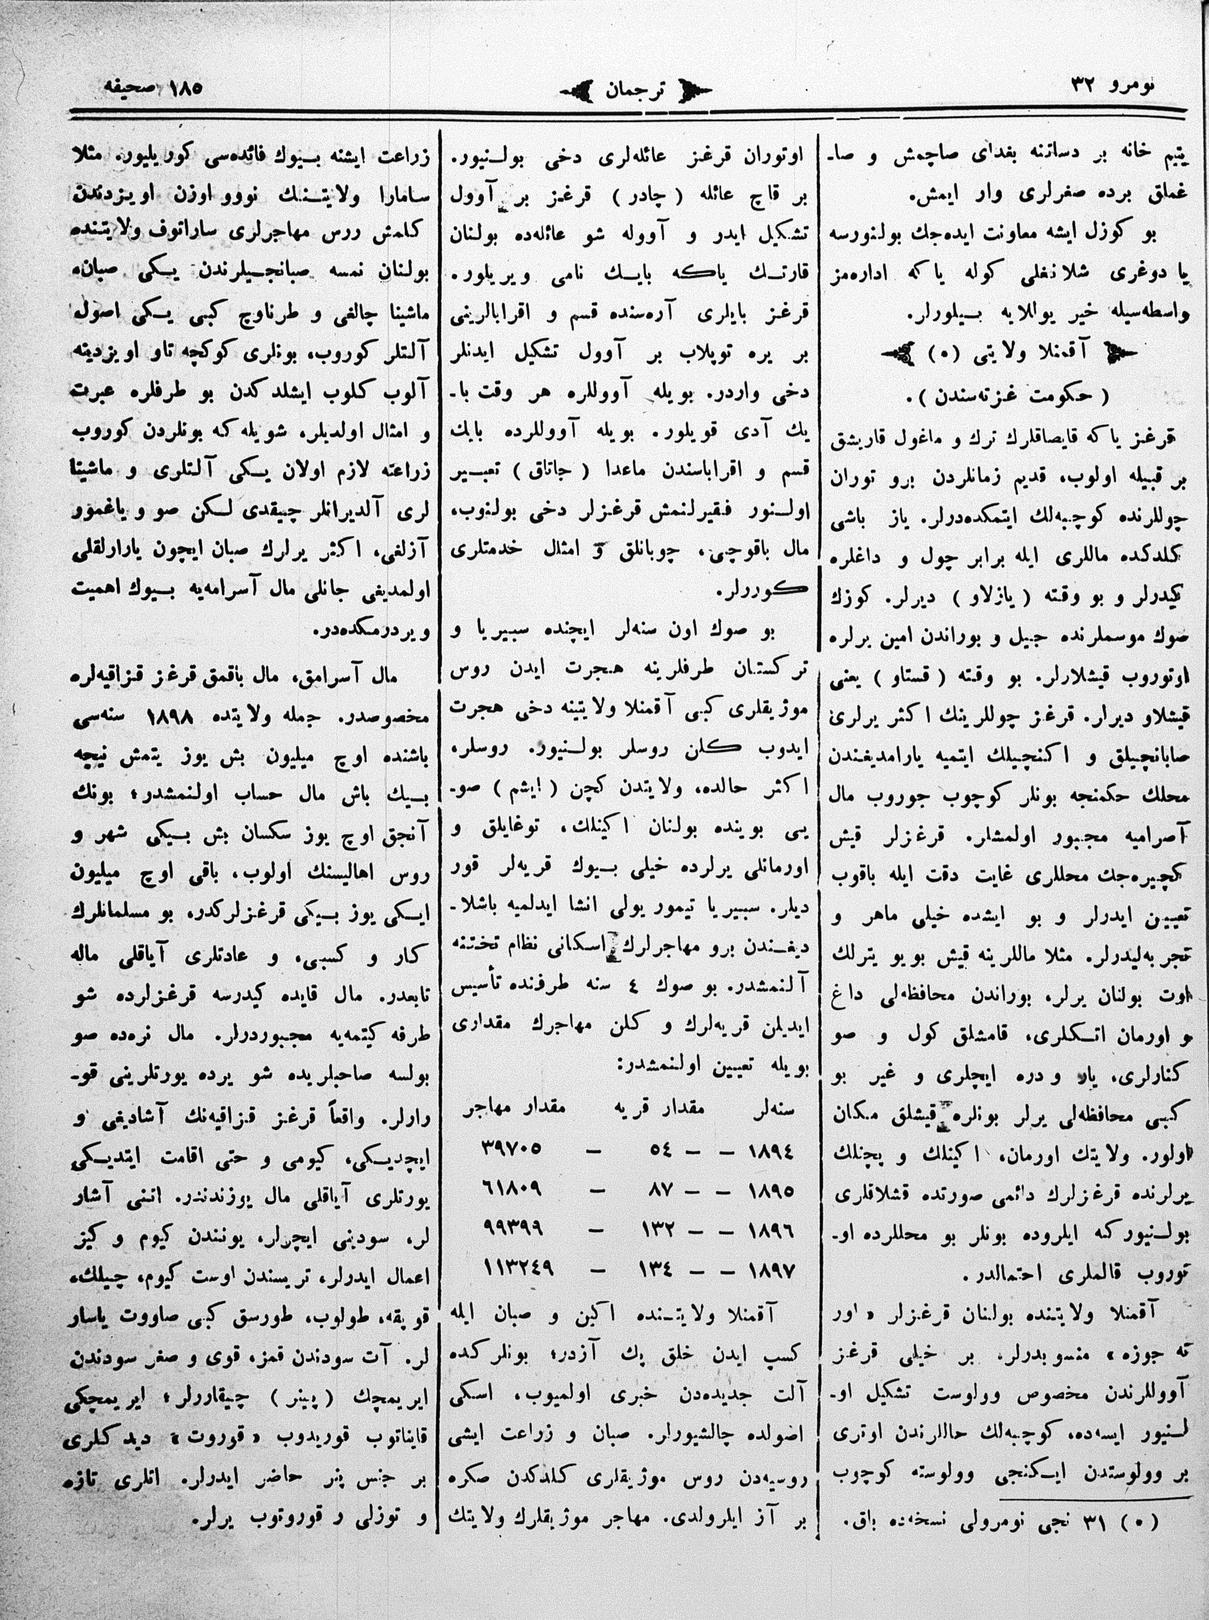 نومرو ٣٢
ترجمان
١٨٥ صحیفه
یتیم خانه بر دساتنه بغدای صاچمش و صا۔
غملق برده صغرلری وار ایمش.
بو کوزل ایشه معاونت ایده‌جك بولنورسه
یا دوغری شلانغلی کوله یا که اداره‌مز
واسطه‌سیله خیر یوللایه بیلورلر.
آقمنلا ولایتی (٥)
( حکومت غزته‌سندن ).
قرغز یا که قایصاقلرك ترك و ماغول قاریشق
بر قبیله اولوب، قدیم زمانلردن برو توران
چوللرنده کوچبه‌لك ایتمکده‌درلر. یاز باشی
کلدکده ماللری ایله برابر چول و داغلره
کیدرلر و بو وقته ( یازلاو ) دیرلر. کوزك
صوك موسملرنده جییل و بوراندن امین یرلره
اوتوروب قیشلارلر. بو وقته ( قستاو ) یعنی
قیشلاو دیرلر. قرغز چوللرینك اکثر یرلری
صابانچیلق و اکنچیلك ایتمیه یارامدیغندن
محلك حکمنجه بونلر کوچوب جوروب مال
آصرامیه مجبور اولمشلر. قرغزلر قیش
کچیره‌جك محللری غایت دقت ایله باقوب
تعیین ایدرلر و بو ایشده خیلی ماهر و
تجربه‌لیدرلر. مثلا ماللرینه قیش بویو یترلك
اوت بولنان یرلر، بوراندن محافظه‌لی داغ
و اورمان اتکلری، قامشلق کول و صو
کنارلری، یار و دره ایچلری و غیر بو
کبی محافظه‌لی یرلر بونلره قیشلق مکان
اولور. ولایتك اورمان، اکینلك و پچنلك
یرلرنده قرغزلرك دائمی صورتده قشلاقلری
بولنیور که ایلروده بونلر بو محللرده او۔
توروب قالملری احتمالدر.
آقمنلا ولایتنده بولنان قرغزلر « اور
ته جوزه » منسوبدرلر. بر خیلی قرغز
آووللرندن مخصوص وولوست تشکیل او۔
لنیور ایسه‌ده، کوچبه‌لك حاللرندن اوتری
بر وولوستدن ایکنجی وولوسته کوچوب
(٥) ٣١ نجی نومرولی نسخه‌ده باق.
اوتوران قرغز عائله‌لری دخی بولنیور.
بر قاچ عائله ( چادر ) قرغز بر آوول
تشکیل ایدر و آووله شو عائله‌ده بولنان
قارتك یا که بایك نامی ویریلور.
قرغز بایلری آره‌سنده قسم و اقرابالرینی
بر یره توپلاب بر آوول تشکیل ایدنلر
دخی واردر. بویله آووللره هر وقت با۔
یك آدی قویلور. بویله آووللرده بایك
قسم و اقراباسندن ماعدا ( جاتاق ) تعبیر
اولنور فقیرلنمش قرغزلر دخی بولنوب،
مال باقوچی، چوبانلق و امثال خدمتلری
کوررلر.
بو صوك اون سنه‌لر ایچنده سبیریا و
ترکستان طرفلرینه هجرت ایدن روس
موژیقلری کبی آقمنلا ولایتینه دخی هجرت
ایدوب کلن روسلر بولنیور. روسلر،
اکثر حالده، ولایتدن کچن ( ایشم ) صو۔
یی بوینده بولنان اکینلك، توغایلق و
اورمانلی یرلرده خیلی بیوك قریه‌لر قور
دیلر. سبیریا تیمور یولی انشا ایدلمیه باشلا۔
دیغندن برو مهاجرلرك اسکانی نظام تختنه
آلنمشدر. بو صوك ٤ سنه طرفنده تأسیس
ایدیلن قریه‌لرك و کلن مهاجرك مقداری
بویله تعیین اولنمشدر:
سنه‌لر مقدار قریه مقدار مهاجر
١٨٩٤ – – ٥٤ – ٣٩٧٠٥
١٨٩٥ – – ٨٧ – ٦١٨٠٩
١٨٩٦ – – ١٣٢ – ٩٩٣٩٩
١٨٩٧ – – ١٣٤ – ١١٣٢٤٩
آقمنلا ولایتنده اکین و صبان ایله
کسب ایدن خلق پك آزدر؛ بونلر کده
آلت جدیده‌دن خبری اولمیوب، اسکی
اصولده چالشیورلر. صبان و زراعت ایشی
روسیه‌دن روس موژیقلری کلدکدن صکره
بر آز ایلرولدی. مهاجر موژیقلرك ولایتك
زراعت ایشنه بیوك فائده‌سی کوریلیور. مثلا
سامارا ولایتنك نووو اوزن اویزدندن
کلمش ررس مهاجرلری ساراتوف ولایتنده
بولنان نمسه صبانجیلرندن یکی صبان،
ماشینا چالغی و طرناوچ کبی یکی اصول
آلتلر کوروب، بونلری کوکچه تاو اویزدینه
آلوب کلوب ایشلدکدن بو طرفلره عبرت
و امثال اولدیلر. شویله که بونلردن کوروب
زراعته لازم اولان یکی آلتلری و ماشینا
لری آلدیرانلر چیقدی لکن صو و یاغمور
آزلغی، اکثر یرلرك صبان ایچون یارارلقلی
اولمدیغی جانلی مال آسرامه‌یه بیوك اهمیت
ویردرمکده‌در.
مال آسرامق، مال باقمق قرغز قزاقیه‌لره
مخصوصدر. جمله ولایتده ١٨٩٨ سنه‌سی
باشنده اوچ میلیون بش یوز یتمش نیچه
بیك باش مال حساب اولنمشدر؛ بونك
آنجق اوچ یوز سکسان بش بیکی شهر و
روس اهالیسنك اولوب، باقی اوچ میلیون
ایکی یوز بیکی قرغزلرکدر. بو مسلمانلرك
کار و کسبی، و عادتلری آیاقلی ماله
تابعدر. مال قایده کیدرسه قرغزلرده شو
طرفه کیتمه‌یه مجبوردرلر. مال نره‌ده صو
بولسه صاحبلریده شو یرده یورتلرینی قو۔
رارلر. واقعاً قرغز قزاقیه‌نك آشادیغی و
ایچدیکی، کیومی و حتی اقامت ایتدیکی
یورتلری آیاقلی مال یوزندندر. اتنی آشار
لر، سودینی ایچرلر، یونندن کیوم و کیز
اعمال ایدرلر، تریسندن اوست کیوم، چیلك،
قوپقه، طولوب، طورسق کبی صاووت یاسار
لر. آت سودندن قمز، قوی و صغر سودندن
ایریمچك ( پینر ) چیقاررلر؛ ایریمچکی
قایناتوب قوریدوب « قوروت » دیدکلری
بر جنس پنر حاضر ایدرلر. اتلری تازه
و توزلی و قوروتوب یرلر.